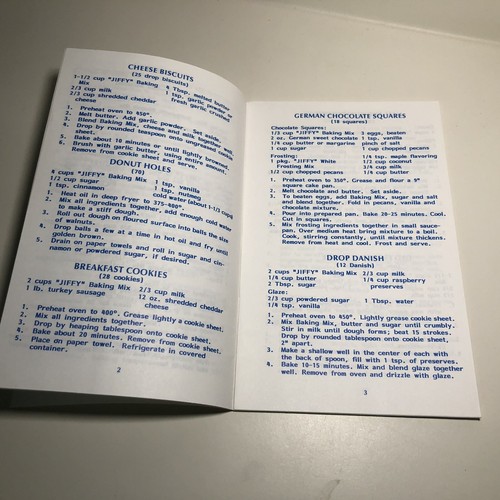 CHEESE BISCUITS
(25 drop biscuits)
1-1/2 cup "JIFFY" Baking Mix
4 Tbsp. melted butter
2/3 cup milk
1 tsp. garlic powder or fresh garlic crushed
2/3 cup shredded cheddar cheese
1. Preheat oven to 450°.
2. Melt butter. Add garlic powder. Set aside.
3. Blend Baking Mix, cheese and milk together well.
4. Drop by rounded teaspoon onto ungreased cookie sheet.
5. Bake about 10 minutes or until lightly browned.
6. Brush with garlic butter, using entire amount. Remove from cookie sheet and serve.
DONUT HOLES
(70)
4 cups "JIFFY" Baking Mix
1 tsp. vanilla
1/2 cup sugar
1 tsp. nutmeg
1 tsp. cinnamon
cold water (about 1-1/2 cups)
1. Heat oil in deep fryer to 375-400°.
2. Mix all ingredients together, add enough cold water to make a stiff dough.
3. Roll out dough on floured surface into balls the size of walnuts.
4. Drop balls a few at a time in hot oil and fry until golden brown.
5. Drain on paper towels and roll in sugar and cinnamon or powdered sugar, if desired.
BREAKFAST COOKIES
(28 cookies)
2 cups "JIFFY" Baking Mix
2/3 cup milk
1 lb. turkey sausage
12 oz. shredded cheddar cheese
1. Preheat oven to 400°. Grease lightly a cookie sheet.
2. Mix all ingredients together.
3. Drop by heaping tablespoon onto cookie sheet.
4. Bake about 20 minutes. Remove from cookie sheet.
5. Place on paper towel. Refrigerate in covered container.
2
GERMAN CHOCOLATE SQUARES
(18 squares)
Chocolate Squares:
1/3 cup "JIFFY" Baking Mix
3 eggs, beaten
2 oz. German sweet chocolate
1 tsp. vanilla
1/4 cup butter or margarine
pinch of salt
1 cup sugar
1 cup chopped pecans
Frosting:
1/4 tsp. maple flavoring
1 pkg. "JIFFY" White Frosting Mix
1/2 cup coconut
1/4 cup milk
1/2 cup chopped pecans
1/4 cup butter
1. Preheat oven to 350°. Grease and flour a 9" square cake pan.
2. Melt chocolate and butter. Set aside.
3. To beaten eggs, add Baking Mix, sugar and salt and blend together. Fold in pecans, vanilla and chocolate mixture.
4. Pour into prepared pan. Bake 20-25 minutes. Cool. Cut in squares.
5. Mix frosting ingredients together in small sauce-
pan. Over medium heat bring mixture to a boil. Cook, stirring constantly, until mixture thickens. Remove from heat and cool. Frost and serve.
DROP DANISH
(12 Danish)
2 cups "JIFFY" Baking Mix
2/3 cup milk
1/4 cup butter
1/4 cup raspberry preserves
2 Tbsp. sugar
Glaze:
2/3 cup powdered sugar
1 Tbsp. water
1/4 tsp. vanilla
1. Preheat oven to 450°. Lightly grease cookie sheet.
2. Mix Baking Mix, butter and sugar until crumbly. Stir in milk until dough forms; beat 15 strokes. Drop by rounded tablespoon onto cookie sheet, 2" apart.
3. Make a shallow well in the center of each with the back of spoon, fill with 1 tsp. of preserves.
4. Bake 10-15 minutes. Mix and blend glaze together well. Remove from oven and drizzle with glaze.
3